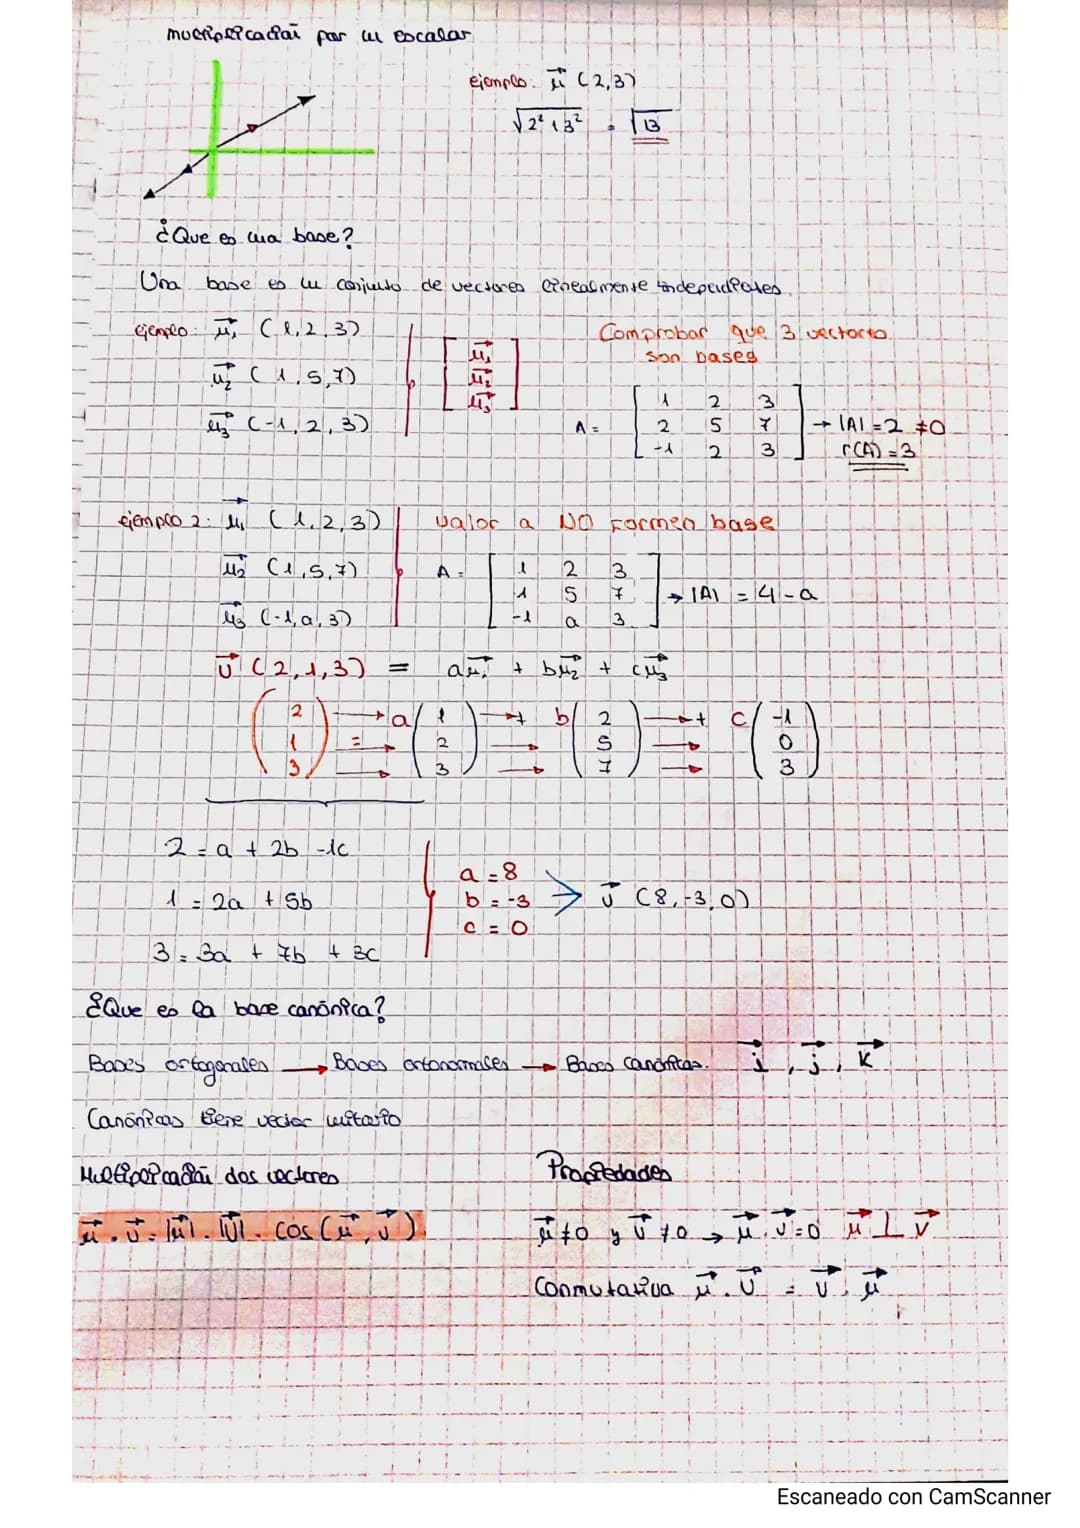 multiplicación por un escalar
ejemplo. μ⃗ (2,3)
√2²+3² = √13
¿Que es una base?
Una base es un conjunto de vectores linealmente independientes.
ejemplo: μ⃗₁ (1,2,3)
μ⃗₂ (1,5,7)
μ⃗₃ (-1,2,3)
[ μ⃗₁ μ⃗₂ μ⃗₃ ]
Comprobar que 3 vectores
son bases
A = [ 1 2 3
2 5 7
-1 2 3 ] → |A| = 2 ≠0
r(A) = 3
ejemplo 2: μ⃗₁ (1,2,3)
μ⃗₂ (1,5,7)
μ⃗₃ (-1,a,3)
valor a NO formen base
A = [ 1 2 3
1 5 7
-1 a 3 ] → |A| = 4-a
v⃗ (2,1,3) = aμ⃗₁ + bμ⃗₂ + cμ⃗₃
(2 1 3) = → a (1 2 3) → + b (2 5 7) → + c (-1 0 3)
2 = a + 2b -1c
1 = 2a + 5b
3 = 3a + 7b + 3c
a = 8
b = -3
c = 0
v⃗ (8,-3,0)
¿Que es la base canónica?
Bases ortogonales → Bases ortonormales → Bases canónicas. i⃗, j⃗, k⃗
Canónicas tiene vector unitario
Multiplicación dos vectores
μ⃗ . v⃗ = |μ⃗| . |v⃗| . cos (μ⃗, v⃗)
Propiedades
μ⃗ ≠0 y v⃗ ≠0 → μ⃗ . v⃗ =0 μ⃗ ⊥ v⃗
Conmutativa μ⃗ . v⃗ = v⃗ . μ⃗
Escaneado con CamScanner